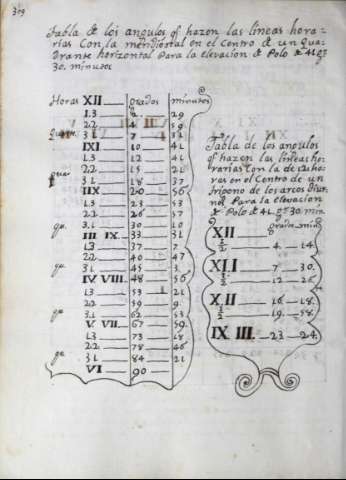 Tabla de los angulos q̃ hazen las lineas hora-
rias Con la meridional en el Centro de un Qua-
drante horizontal Para la elevacion de Polo de 41 gs
30. minutos
Horas XII grados minutos
13 2 29
22 4 59
31 7
IXI 10 41
13 12 41
22 15 21
31 18 37
IIX 20 56
13 23 53
22 26 57
qu. 31 30 10
III IX 33 31
13 37 7
22 40 47
qu. 31 45 3
IV VIII. 48 56
13 53 21
22 59 9
qu. 31 62 53
V VII. 67 59
13 73 18
22 78 46
qu 31 84 21
VI 90
Tabla de los angulos
q̃ hazen las lineas ho
rarias con la de 12 ho
ras en el Centro de un
trigono de los arcos diur
nos Para la elevacion
de Polo de 41. gs 30 min
XII grados min
1/2 4 14
XI.I 7 30.
1/2 12 26
X.II 16 18.
1/2 19 58.
IX III. 23 24.